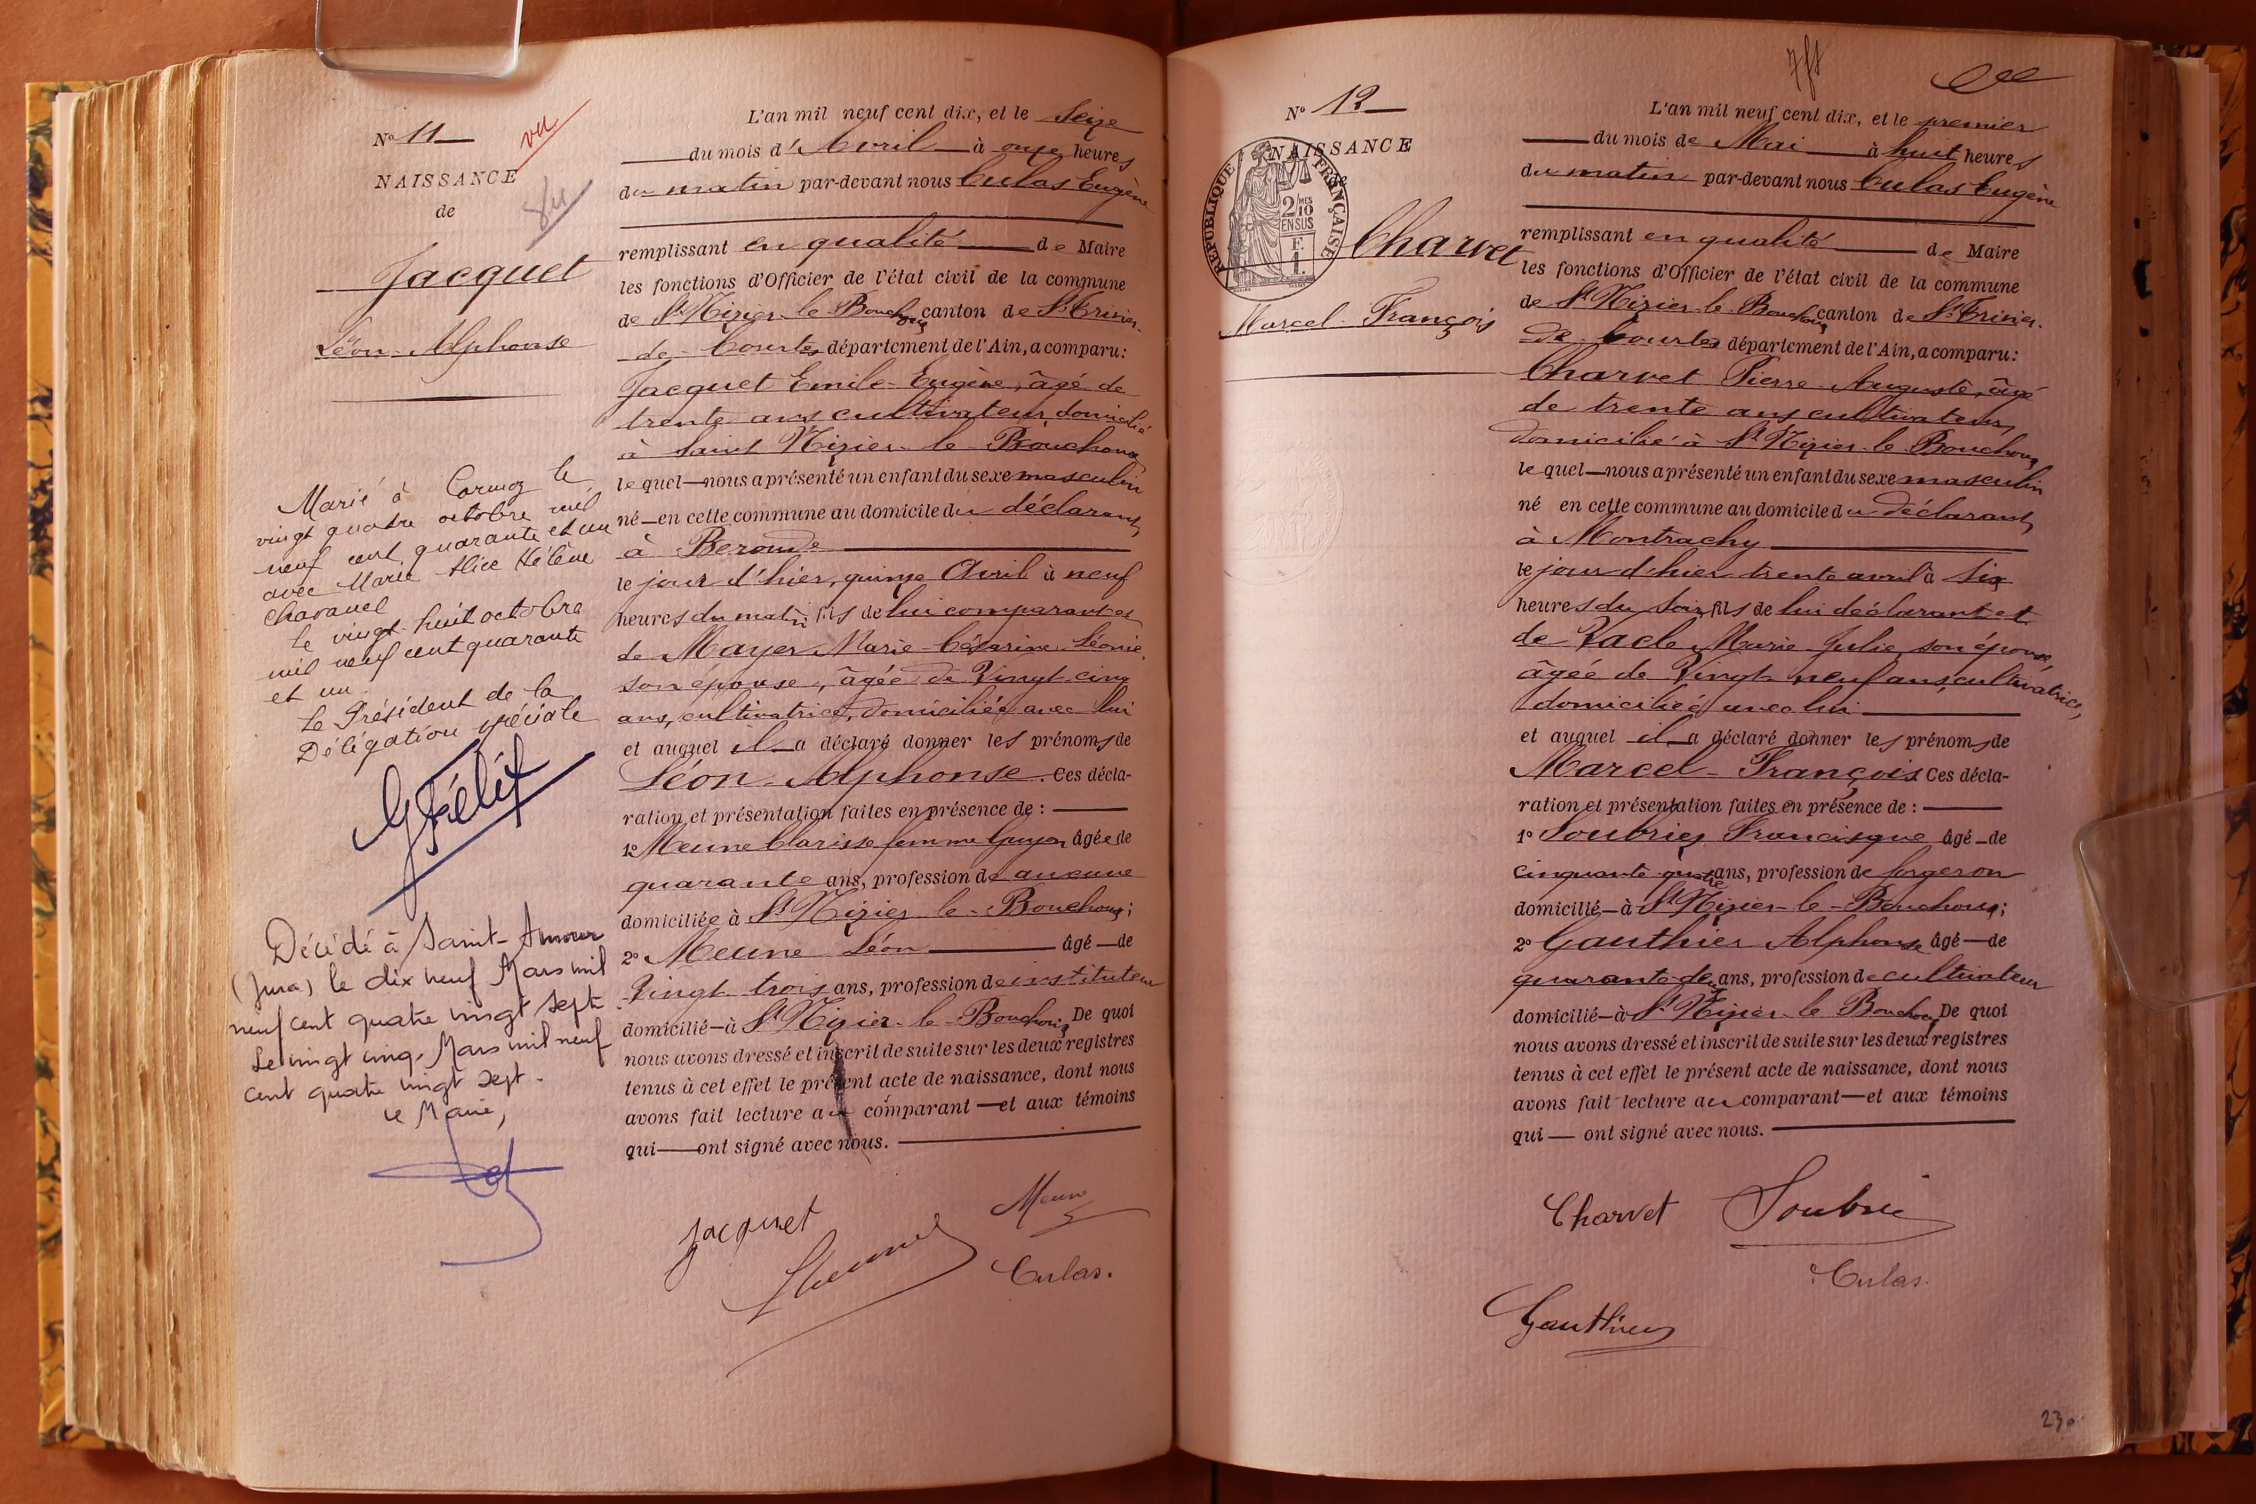 N° 11
vu
NAISSANCE
de
Jacquet
Léon-Alphonse
Marié à Cormoz le
vingt quatre octobre mil
neuf cent quarante et un
avec Marie Alice Hélène
Chavanel
le vingt-huit octobre
mil neuf cent quarante
et un
Le Président de la
Délégation spéciale
GFélix
Décédé à Saint-Amour
(Jura) le dix neuf Mars mil
neuf cent quatre vingt sept
Le vingt cinq Mars mil neuf
cent quatre vingt sept.
Le Maire,
L'an mil neuf cent dix, et le Seize
du mois d'Avril à onze heures
du matin par-devant nous Culas Eugène
remplissant en qualité de Maire
les fonctions d'Officier de l'état civil de la commune
de St Nizier-le-Bouchoux canton de St Trivier-
de-Courtes département de l'Ain, a comparu:
Jacquet Emile-Eugène, âgé de
trente ans cultivateur domicilié
à Saint Nizier-le-Bouchoux
lequel nous a présenté un enfant du sexe masculin
né en cette commune au domicile du déclarant,
à Beronde
le jour d'hier, quinze Avril à neuf
heures du matin fils de lui comparant et
de Mayer Marie-Césarine-Léonie,
son épouse, âgée de Vingt-cinq
ans, cultivatrice, domiciliée avec lui
et auquel il a déclaré donner les prénoms de
Léon-Alphonse. Ces décla-
ration et présentation faites en présence de :
1° Meune Clarisse femme Guyon âgée de
quarante ans, profession de aucune
domiciliée à St Nizier-le-Bouchoux;
2° Meune Léon âgé de
Vingt trois ans, profession de instituteur
domicilié à St Nizier-le-Bouchoux De quoi
nous avons dressé et inscrit de suite sur les deux registres
tenus à cet effet le présent acte de naissance, dont nous
avons fait lecture au comparant et aux témoins
qui ont signé avec nous.
Jacquet
Meune
Culas.
N° 12
NAISSANCE
de
RÉPUBLIQUE FRANÇAISE
2/10 MES
EN SUS
F.
1.
Charvet
Marcel-François
L'an mil neuf cent dix, et le premier
du mois de Mai à huit heures
du matin par-devant nous Culas Eugène
remplissant en qualité de Maire
les fonctions d'Officier de l'état civil de la commune
de St Nizier-le-Bouchoux canton de St Trivier-
de-Courtes département de l'Ain, a comparu:
Charvet Pierre-Auguste, âgé
de trente ans cultivateur,
domicilié à St Nizier-le-Bouchoux
lequel nous a présenté un enfant du sexe masculin
né en cette commune au domicile du déclarant,
à Montrachy
le jour d'hier trente avril à six
heures du soir fils de lui déclarant et
de Vacle Marie-Julie, son épouse,
âgée de Vingt-neuf ans, cultivatrice,
domiciliée avec lui
et auquel il a déclaré donner les prénoms de
Marcel-François Ces décla-
ration et présentation faites en présence de :
1° Soubrier Francisque âgé de
cinquante quatre ans, profession de forgeron
domicilié à St Nizier-le-Bouchoux;
2° Gauthier Alphonse âgé de
quarante-deux ans, profession de cultivateur
domicilié à St Nizier-le Bouchoux De quoi
nous avons dressé et inscrit de suite sur les deux registres
tenus à cet effet le présent acte de naissance, dont nous
avons fait lecture au comparant et aux témoins
qui ont signé avec nous.
Charvet
Soubrié
Culas.
Gauthier
230